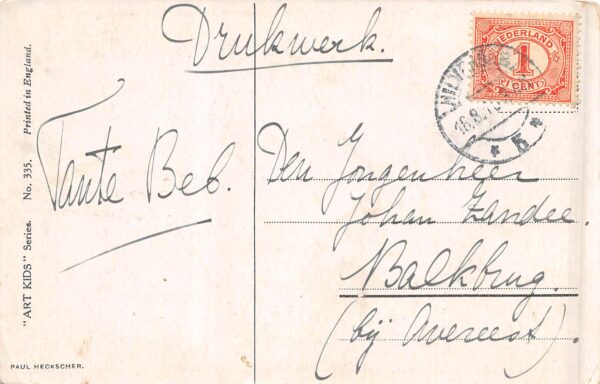 Drukwerk.
NEDERLAND
1
1 CENT
16.8.
* 5 *
Tante Beb.
Den Jongenheer
Johan Zandee.
Balkbrug.
(bij Avereest).
"ART KIDS" Series. No. 335. Printed in England.
PAUL HECKSCHER.